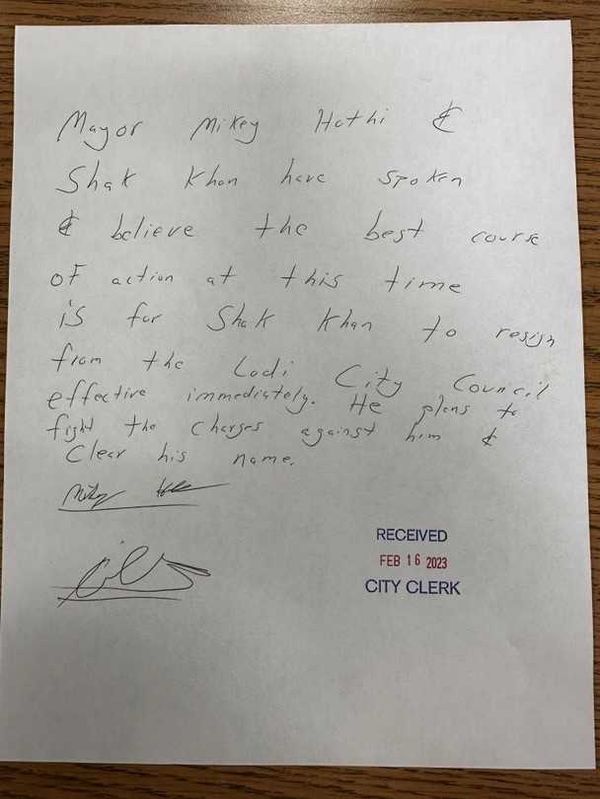 Mayor Mikey Hothi &
Shak Khan have spoken
& believe the best course
of action at this time
is for Shak Khan to resign
from the Lodi City Council
effective immediately. He plans to
fight the charges against him &
Clear his name.
RECEIVED
FEB 16 2023
CITY CLERK